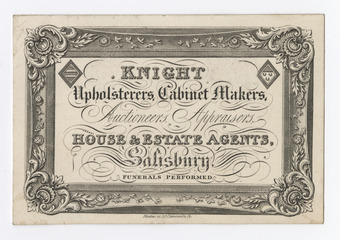 KNIGHT
Upholsterers, Cabinet Makers,
Auctioneers, Appraisors,
HOUSE & ESTATE AGENTS,
Salisbury.
FUNERALS PERFORMED